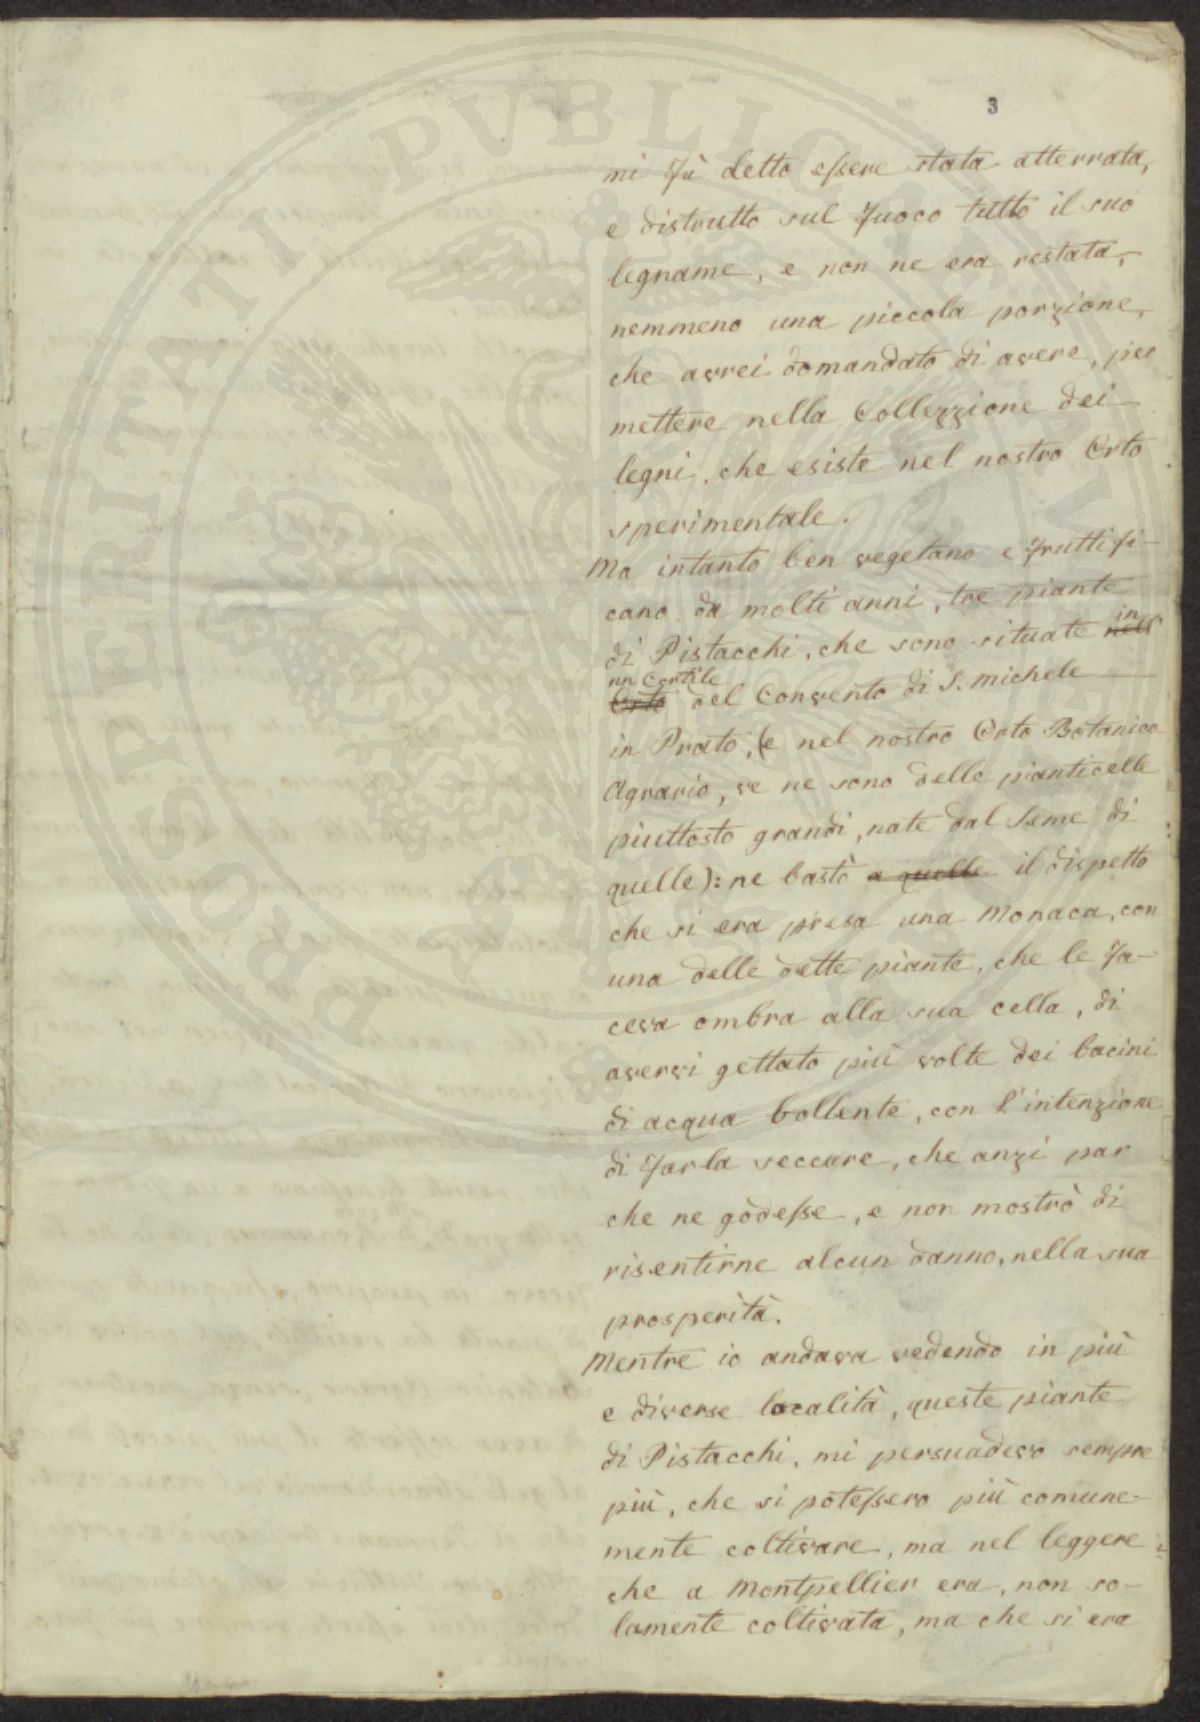 3
mi fù detto essere stata atterrata,
e distrutto sul fuoco tutto il suo
legname, e non ne era restata,
nemmeno una piccola porzione,
che avrei domandato di avere, per
mettere nella Collezzione dei
legni, che esiste nel nostro Orto
sperimentale.
Ma intanto ben vegetano e fruttifi-
cano da molti anni, tre piante
di Pistacchi, che sono situate nell in
Orto un Cortile del Convento di S. Michele
in Prato, (e nel nostro Orto Botanico
Agrario, ve ne sono delle pianticelle
piuttosto grandi, nate dal Seme di
quelle): ne bastò a quelle il dispetto
che si era presa una Monaca, con
una delle dette piante, che le fa-
ceva ombra alla sua cella, di
avervi gettato più volte dei bacini
di acqua bollente, con l'intenzione
di farla seccare, che anzi par
che ne godesse, e non mostrò di
risentirne alcun danno, nella sua
prosperità.
Mentre io andava vedendo in più
e diverse località, queste piante
di Pistacchi, mi persuadevo sempre
più, che si potessero più comune-
mente coltivare, ma nel leggere
che a Montpellier era, non so-
lamente coltivata, ma che si era
PROSPERITATI PVBLICAE